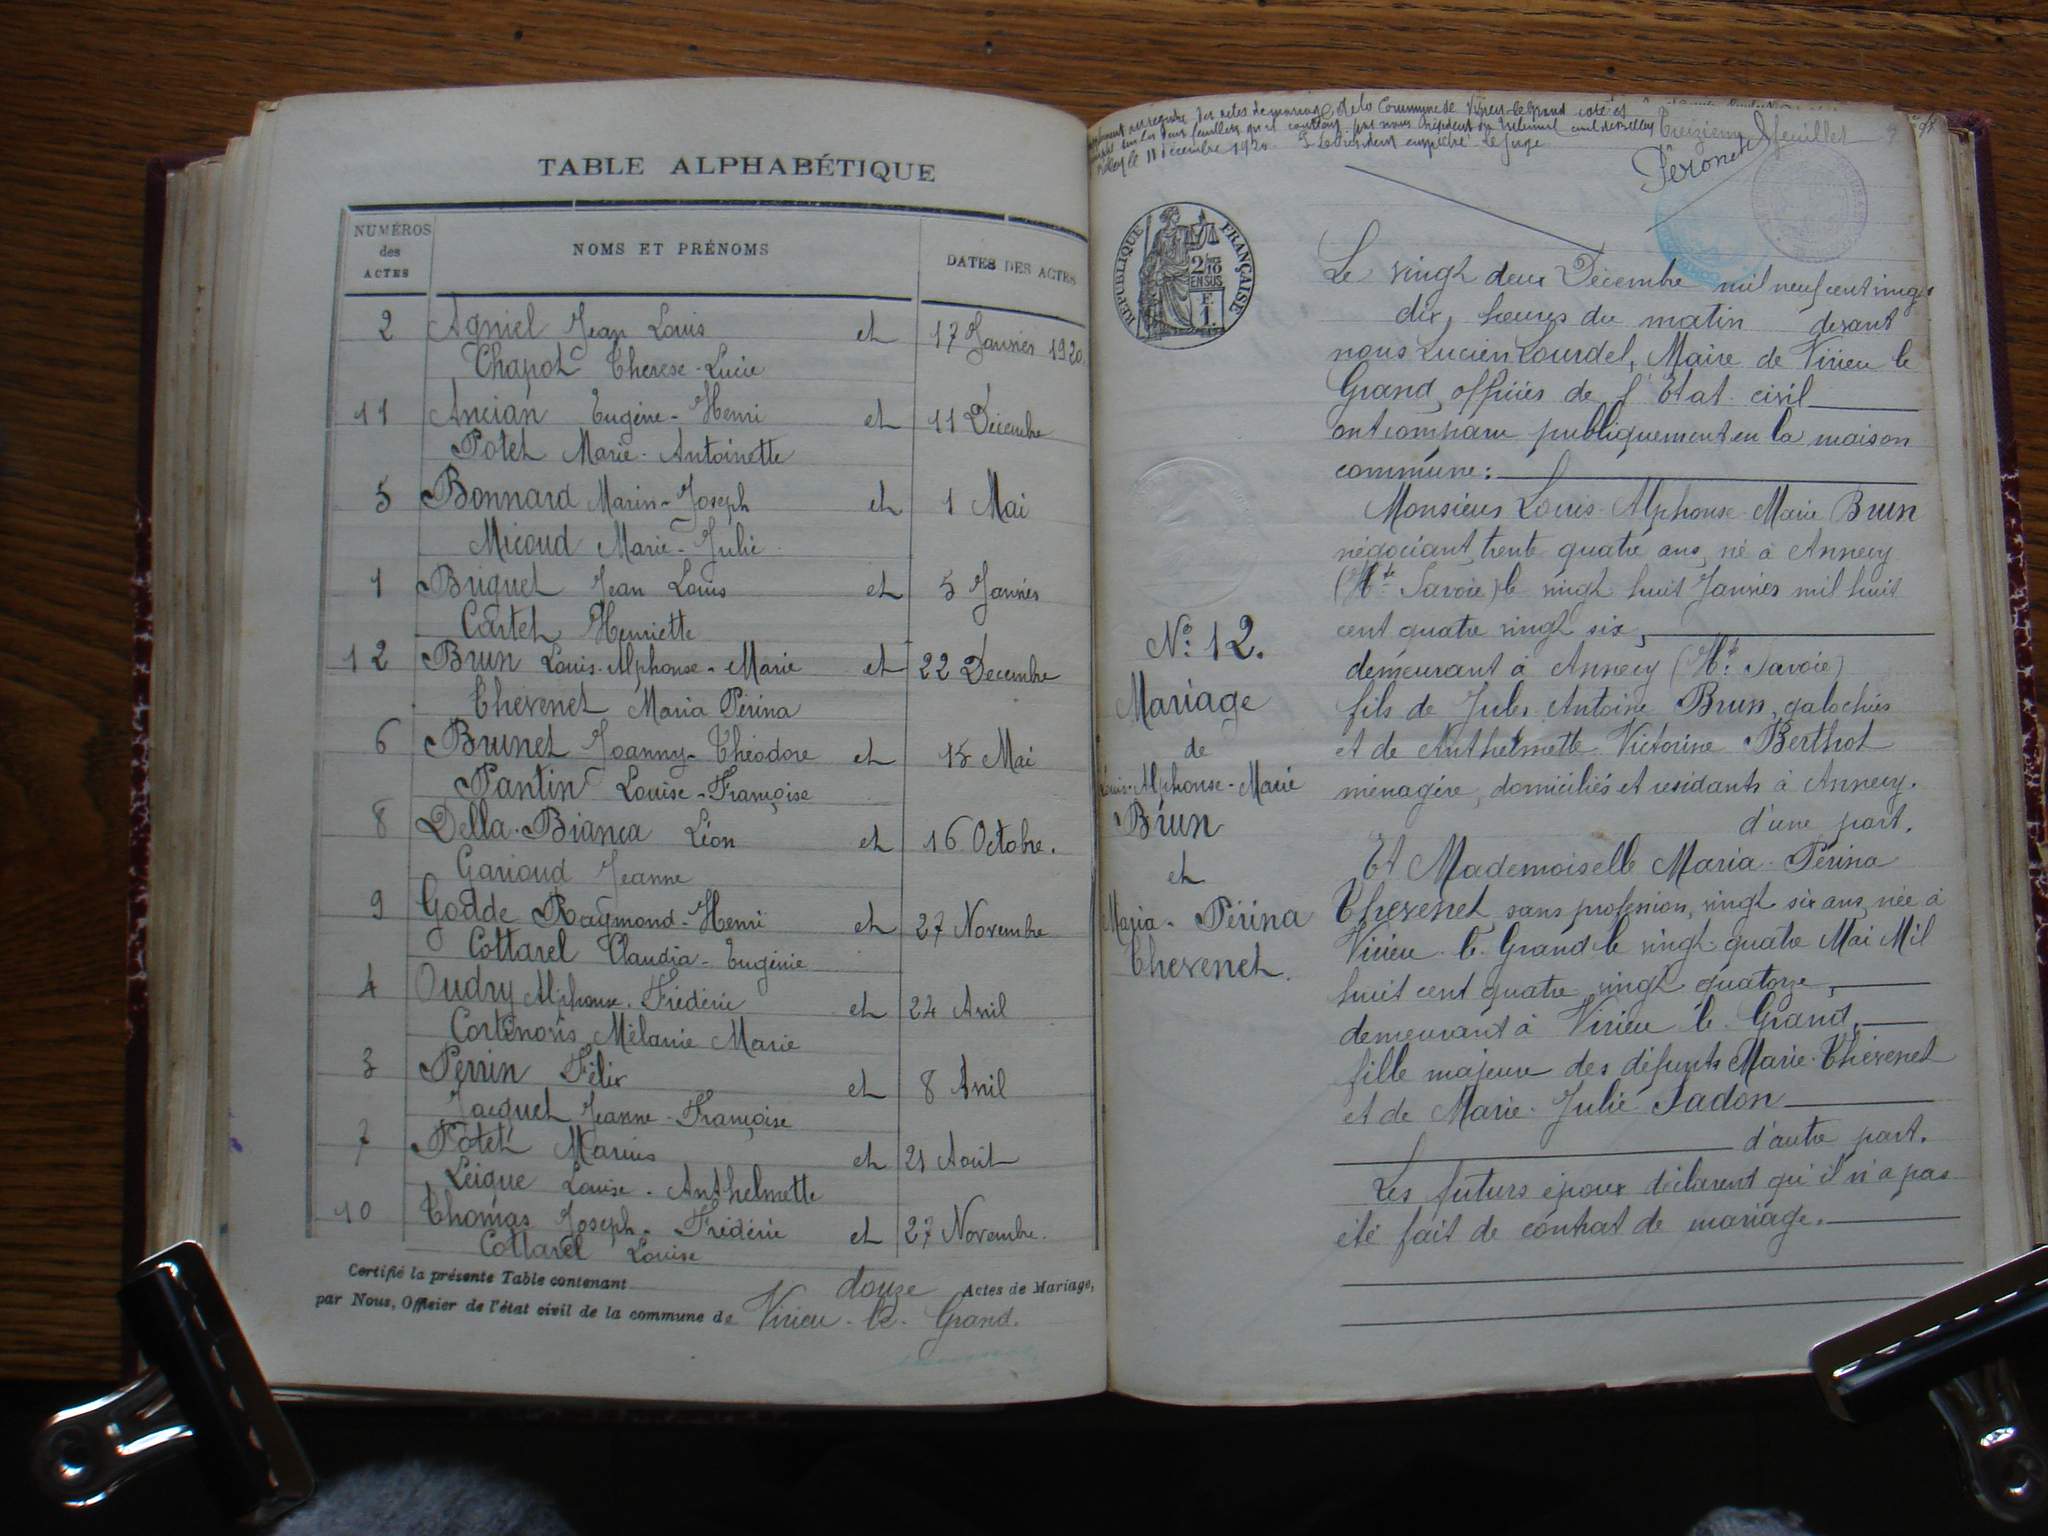 TABLE ALPHABÉTIQUE
NUMÉROS des ACTES
NOMS ET PRÉNOMS
DATES DES ACTES
2 Agniel Jean Louis et 17 Janvier 1920
Chapot Thérèse-Lucie
11 Ancian Eugène-Henri et 11 Décembre
Potet Marie-Antoinette
5 Bonnard Marin-Joseph et 1 Mai
Micoud Marie-Julie
1 Buguet Jean Louis et 5 Janvier
Cartet Henriette
12 Brun Louis-Alphonse-Marie et 22 Décembre
Thevenet Maria Périna
6 Brunet Joanny-Théodore et 15 Mai
Pantin Louise-Françoise
8 Della-Bianca Léon et 16 Octobre.
Garioud Jeanne
9 Godde Raymond-Henri et 27 Novembre
Cottarel Claudia-Eugénie
4 Oudry Alphonse-Frédéric et 24 Avril
Mélanie Marie
3 Perrin Félix et 8 Avril
Jacquet Jeanne-Françoise
7 Potet Marius et 21 Août
Leigue Louise-Anthelmette
10 Thomas Joseph-Frédéric et 27 Novembre.
Cottarel Louise
Certifié la présente Table contenant douze Actes de Mariage,
par Nous, Officier de l'état civil de la commune de Virieu-le-Grand.
registre des actes de mariage de la Commune de Virieu-le-Grand coté et
feuillets qu'il contient par nous Président du Tribunal civil de Belley
le 11 décembre 1920 Le Président empêché Le Juge
Treizième feuillet
Péronet
RÉPUBLIQUE FRANÇAISE
2/10
EN SUS
F.
1.
Le vingt deux Décembre mil neuf cent vingt
dix heures du matin devant
nous Lucien Lourdel, Maire de Virieu le
Grand, officier de l'Etat civil
ont comparu publiquement en la maison
commune:
Monsieur Louis-Alphonse-Marie Brun
négociant, trente quatre ans, né à Annecy
(Hte Savoie) le vingt huit Janvier mil huit
cent quatre vingt six,
demeurant à Annecy (Hte Savoie)
fils de Jules Antoine Brun, galochier
et de Anthelmette Victorine Berthot
ménagère, domiciliés et résidants à Annecy.
d'une part.
Et Mademoiselle Maria-Périna
Thevenet sans profession, vingt six ans, née à
Virieu-le-Grand le vingt quatre Mai Mil
huit cent quatre vingt quatorze,
demeurant à Virieu le Grand,
fille majeure des défunts Marie Thévenet
et de Marie-Julie Jadon
d'autre part.
Les futurs époux déclarent qu'il n'a pas
été fait de contrat de mariage.
No. 12.
Mariage
de
Louis-Alphonse-Marie
Brun
et
Maria-Périna
Thevenet.